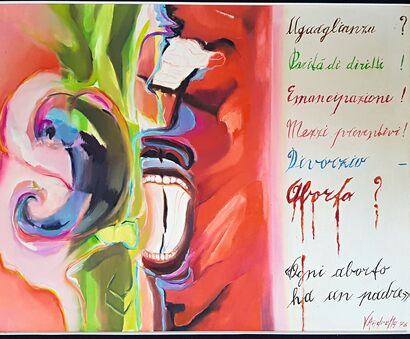 Uguaglianza ?
Parità di diritti !
Emancipazione !
Mezzi preventivi !
Divorzio –
Aborto ?
«Ogni aborto
ha un padre»